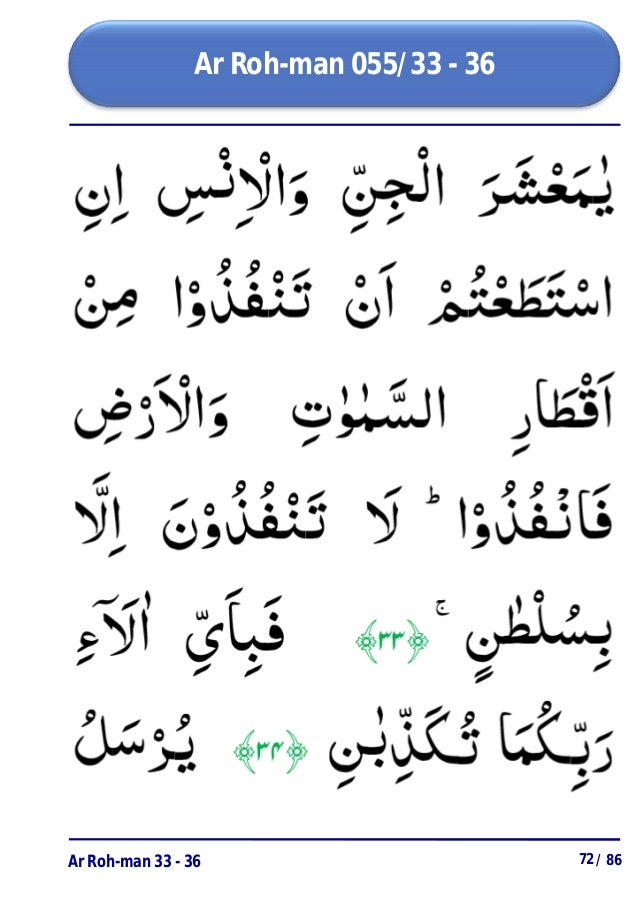 Ar Roh-man 055/33 - 36
يٰمَعْشَرَ الْجِنِّ وَالْاِنْسِ اِنِ
اسْتَطَعْتُمْ اَنْ تَنْفُذُوْا مِنْ
اَقْطَارِ السَّمٰوٰتِ وَالْاَرْضِ
فَانْفُذُوْا ؕ لَا تَنْفُذُوْنَ اِلَّا
بِسُلْطٰنٍ ۚ ﴿۳۳﴾ فَبِاَيِّ اٰلَآءِ
رَبِّكُمَا تُكَذِّبٰنِ ﴿۳۴﴾ يُرْسَلُ
Ar Roh-man 33 - 36 72 / 86